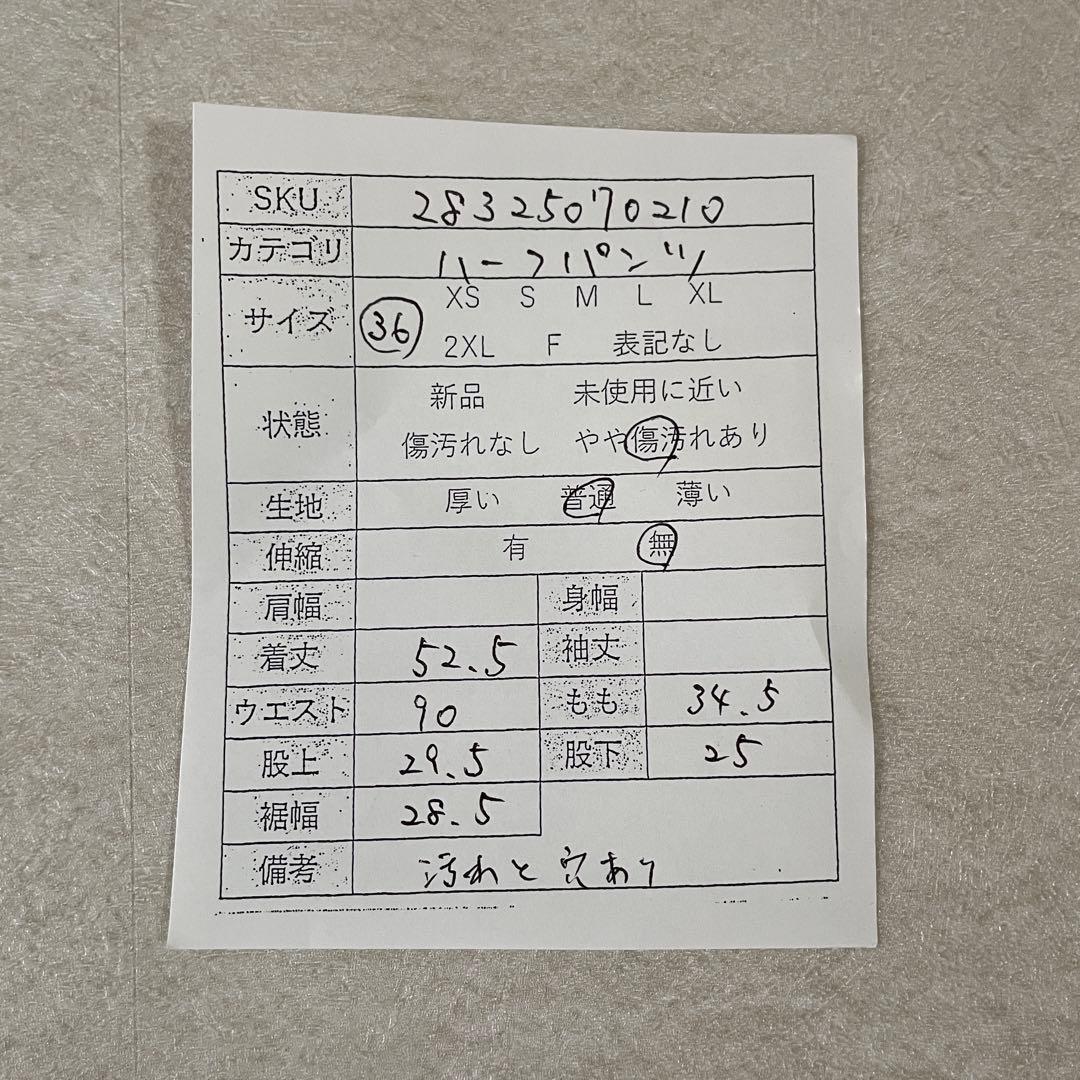 SKU 28325070210
カテゴリ ハーフパンツ
XS S M L XL
サイズ 36
2XL F 表記なし
新品 未使用に近い
状態
傷汚れなし やや傷汚れあり
生地 厚い 普通 薄い
伸縮 有 無
肩幅 身幅
着丈 52.5 袖丈
ウエスト 90 もも 34.5
股上 29.5 股下 25
裾幅 28.5
備考 汚れと穴あり